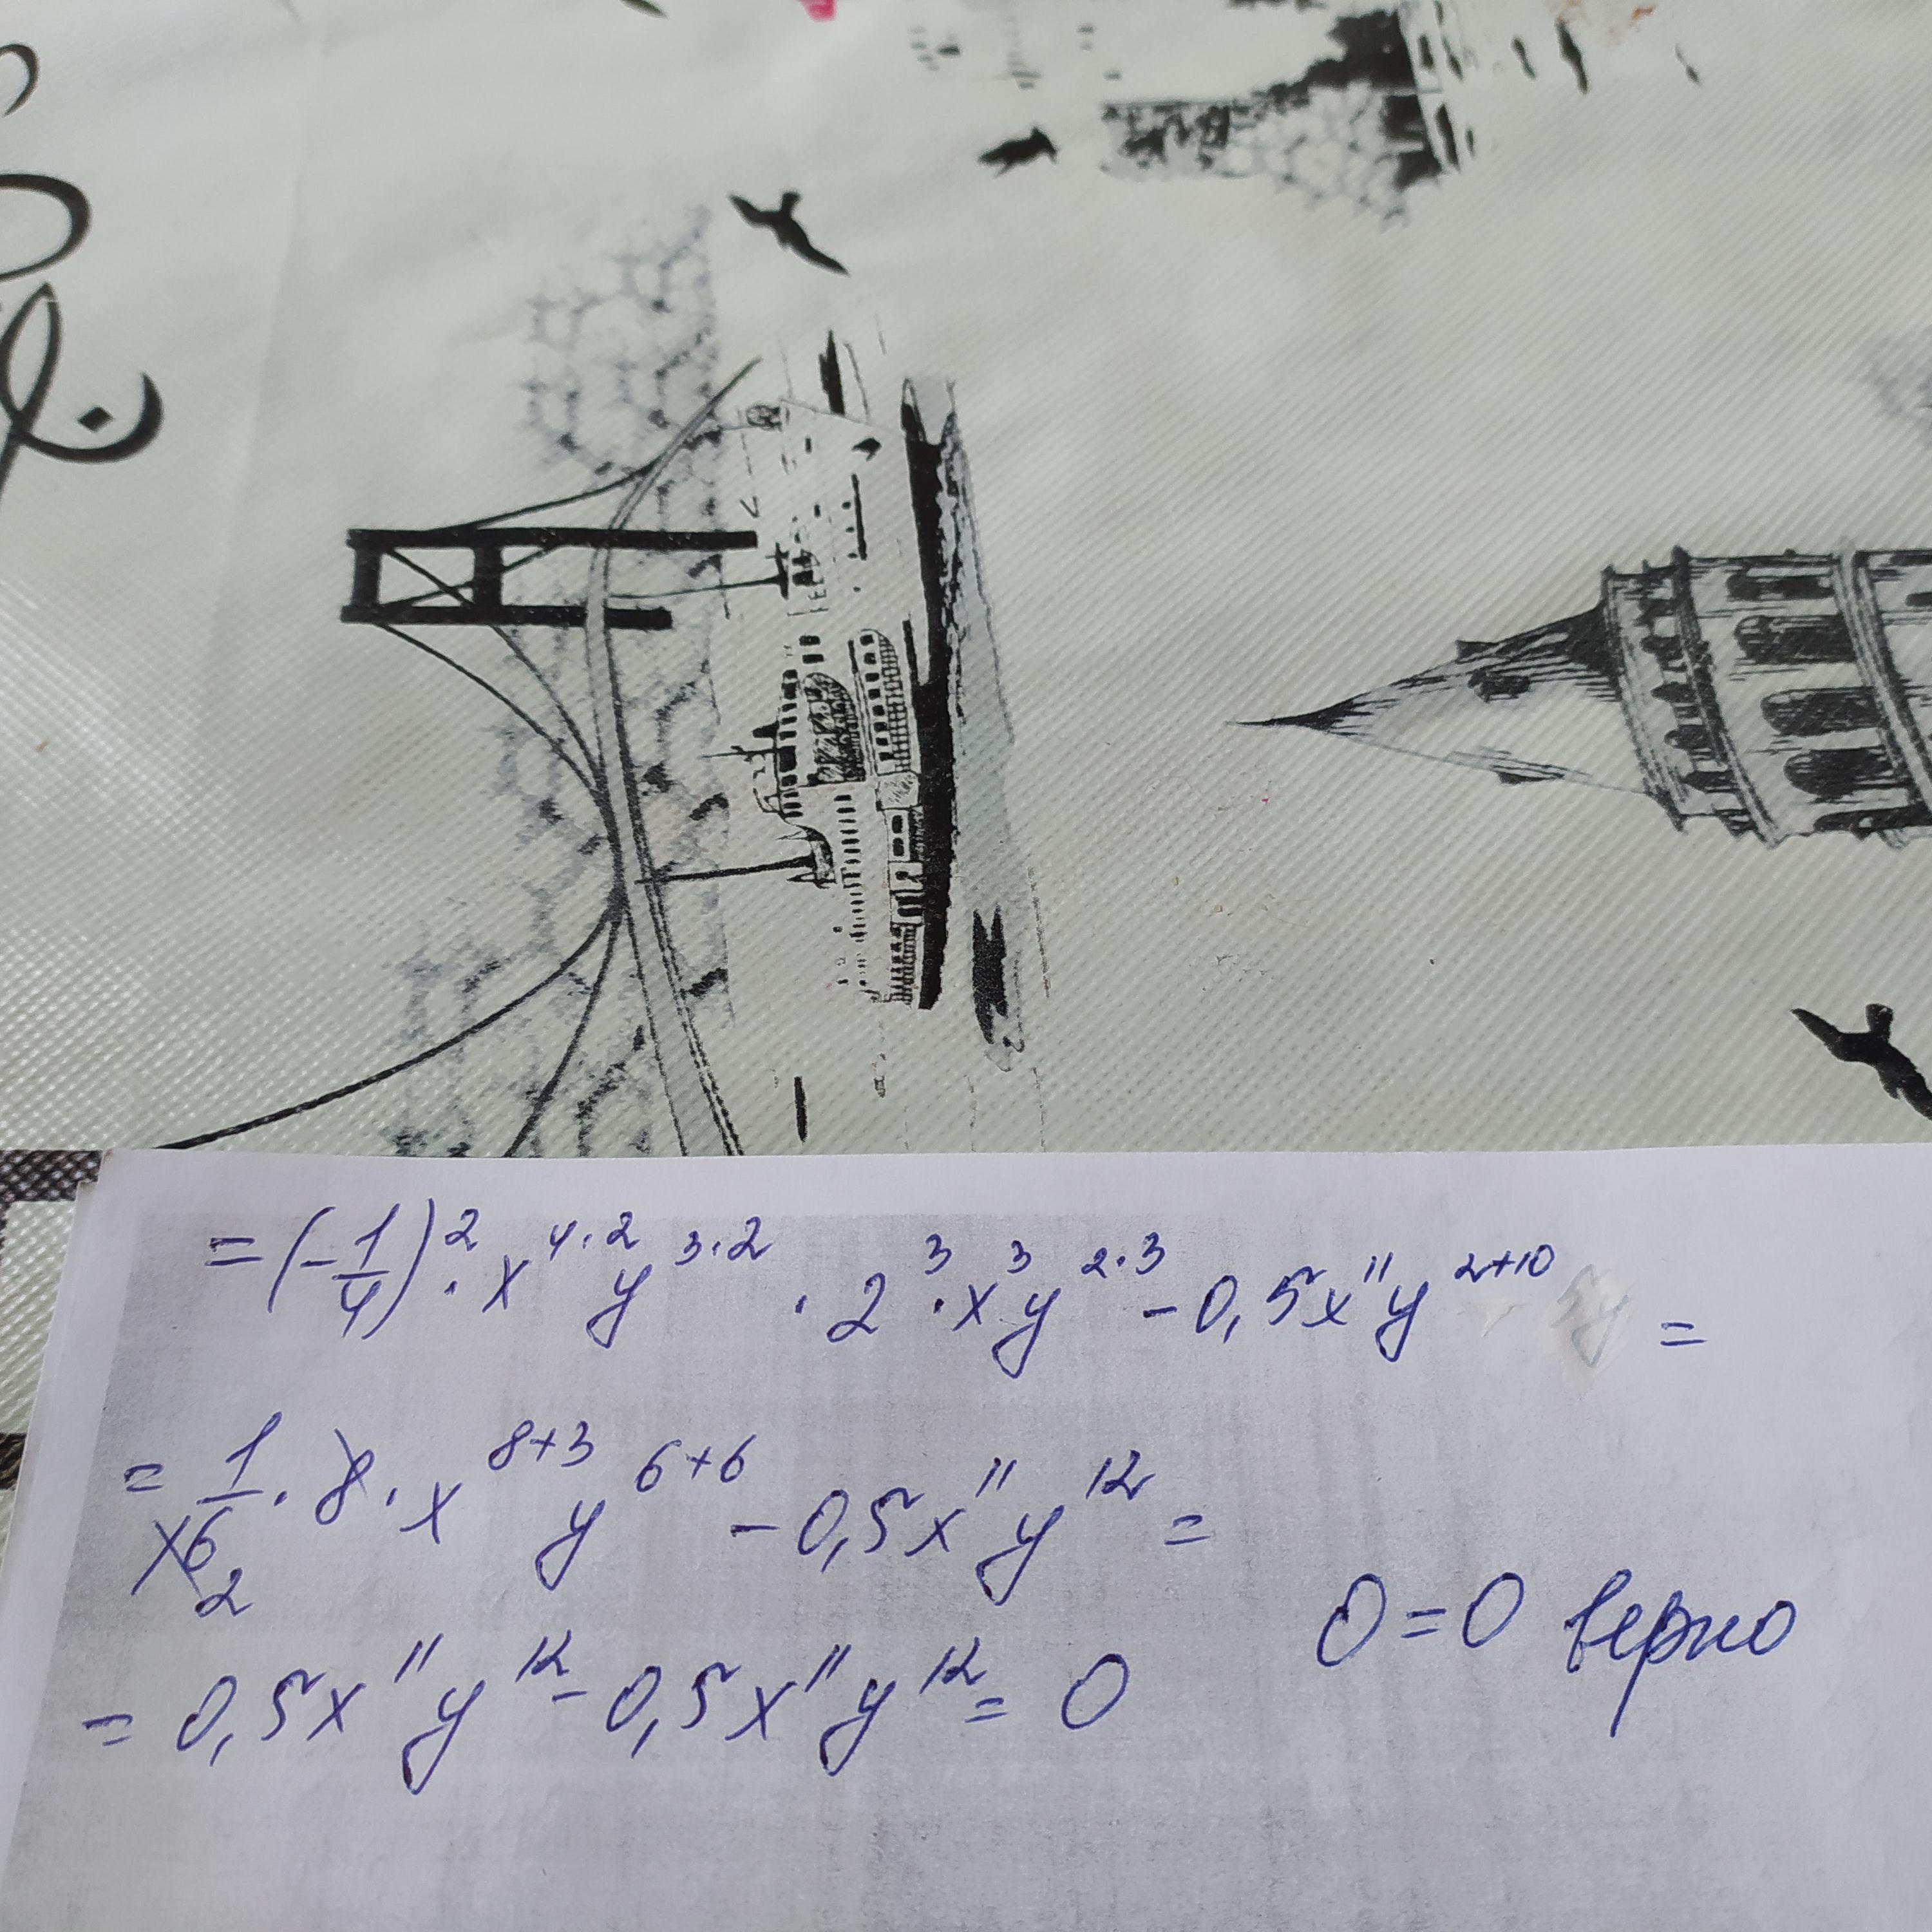 = (-1/4)² · x⁴·² y³·² · 2³ · x³ y²·³ - 0,5x¹¹y²⁺¹⁰ =
= 1/16 · 8 · x⁸⁺³ y⁶⁺⁶ - 0,5x¹¹y¹² =
2
= 0,5x¹¹y¹² - 0,5x¹¹y¹² = 0
0 = 0 верно